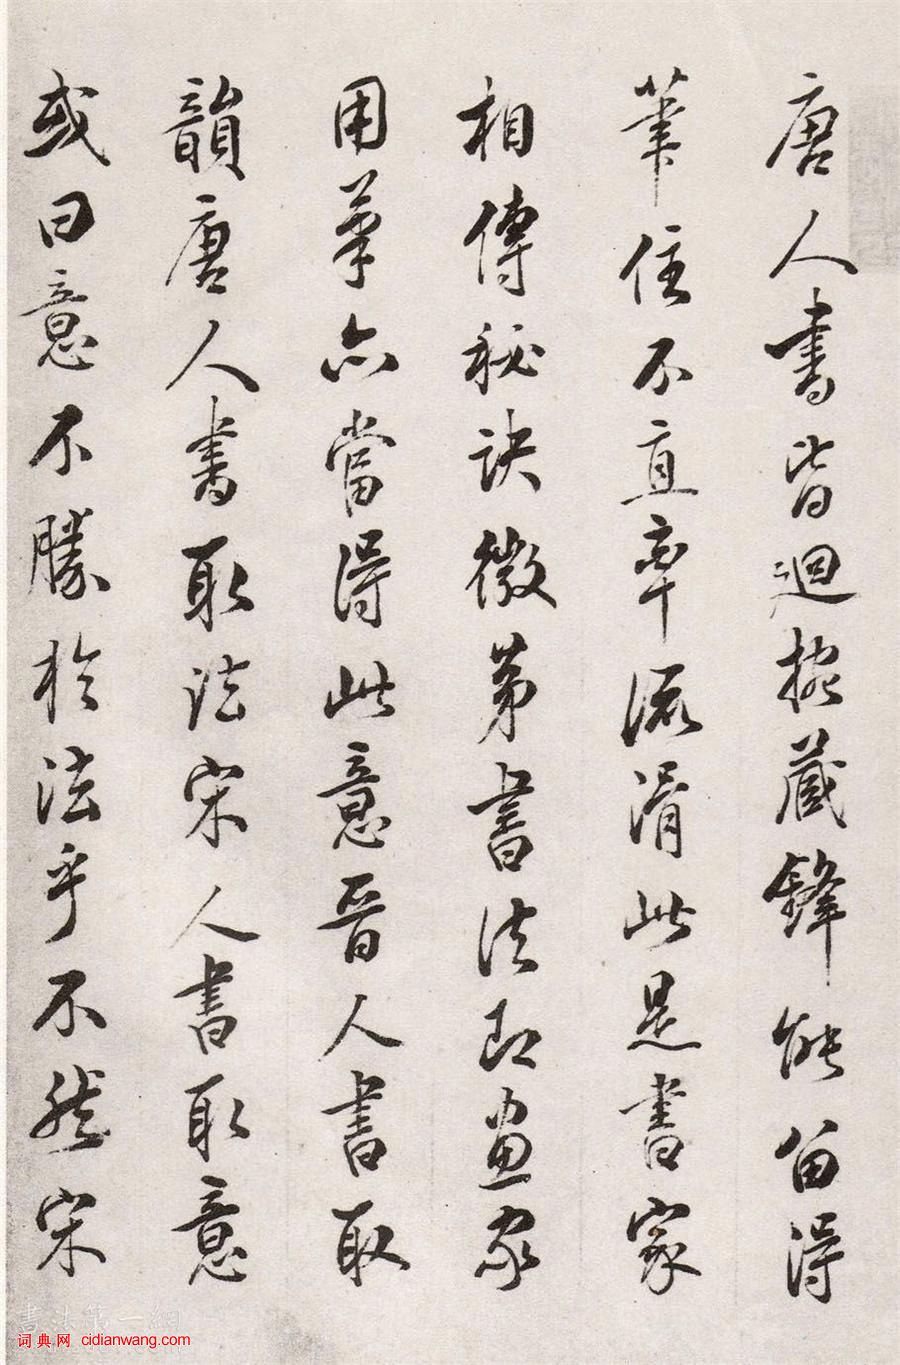 唐人書皆迴腕藏鋒能留得
筆住不直率流滑此是書家
相傳秘訣微第書法即畫家
用筆亦當得此意晉人書取
韻唐人書取法宋人書取意
或曰意不勝於法乎不然宋
書法第一網
词典网 cidianwang.com